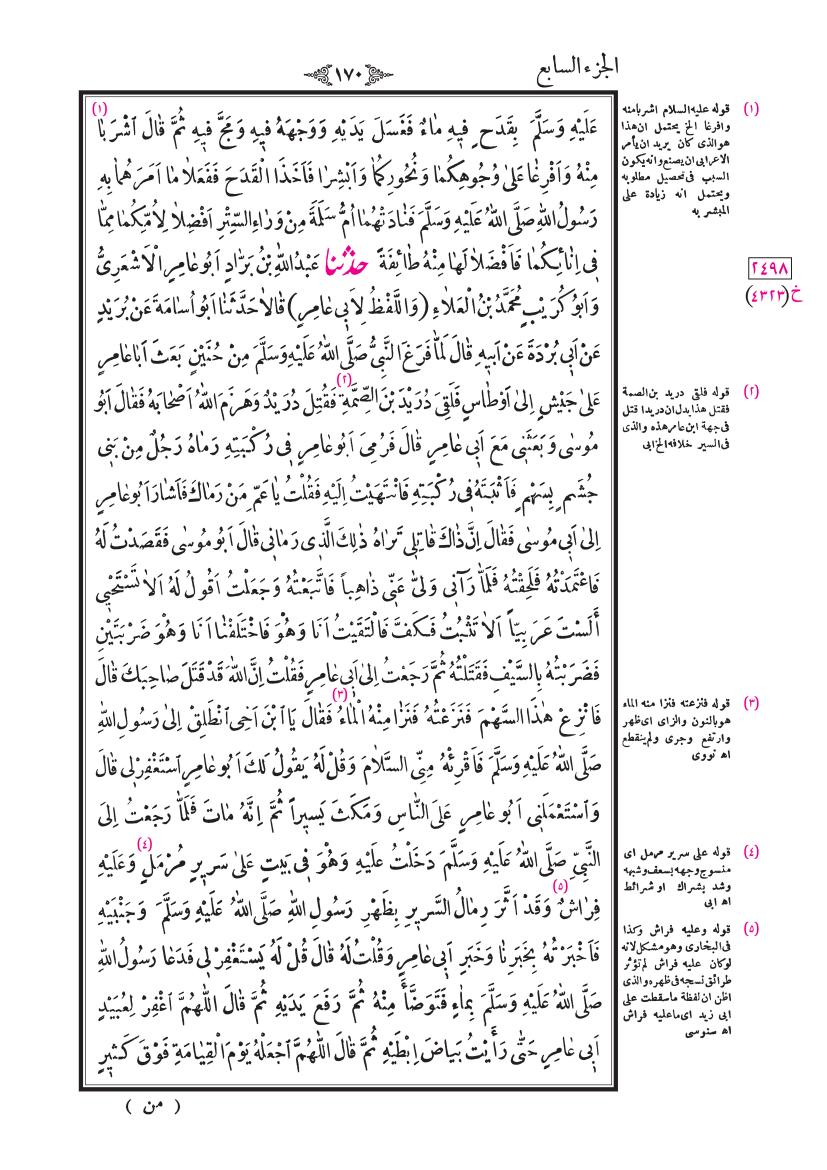 الجزء السابع
١٧٠
عَلَيْهِ وَسَلَّمَ بِقَدَحٍ فِيهِ مَاءٌ فَغَسَلَ يَدَيْهِ وَوَجْهَهُ فِيهِ وَمَجَّ فِيهِ ثُمَّ قَالَ اَشْرَبَا (١)
مِنْهُ وَاَفْرِغَا عَلىٰ وُجُوهِكُمَا وَنُحُورِكُمَا وَاَبْشِرَا فَاَخَذَا الْقَدَحَ فَفَعَلَا مَا اَمَرَهُمَا بِهِ
رَسُولُ اللهِ صَلَّى اللهُ عَلَيْهِ وَسَلَّمَ فَنَادَتْهُمَا اُمُّ سَلَمَةَ مِنْ وَرَاءِ السِّتْرِ اَفْضِلَا لِاُمِّكُمَا مِمَّا
فِى اِنَائِكُمَا فَاَفْضَلَا لَهَا مِنْهُ طَائِفَةً حدثنا عَبْدُ اللهِ بْنُ بَرَّادٍ اَبُو عَامِرٍ الْاَشْعَرِىُّ
وَاَبُو كُرَيْبٍ مُحَمَّدُ بْنُ الْعَلَاءِ (وَاللَّفْظُ لِاَبِى عَامِرٍ) قَالَا حَدَّثَنَا اَبُو اُسَامَةَ عَنْ بُرَيْدٍ
عَنْ اَبِى بُرْدَةَ عَنْ اَبِيهِ قَالَ لَمَّا فَرَغَ النَّبِىُّ صَلَّى اللهُ عَلَيْهِ وَسَلَّمَ مِنْ حُنَيْنٍ بَعَثَ اَبَا عَامِرٍ
عَلىٰ جَيْشٍ اِلىٰ اَوْطَاسٍ فَلَقِىَ دُرَيْدَ بْنَ الصِّمَّةِ (٢) فَقُتِلَ دُرَيْدٌ وَهَزَمَ اللهُ اَصْحَابَهُ فَقَالَ اَبُو
مُوسٰى وَبَعَثَنِى مَعَ اَبِى عَامِرٍ قَالَ فَرُمِىَ اَبُو عَامِرٍ فِى رُكْبَتِهِ رَمَاهُ رَجُلٌ مِنْ بَنِى
جُشَمٍ بِسَهْمٍ فَاَثْبَتَهُ فِى رُكْبَتِهِ فَانْتَهَيْتُ اِلَيْهِ فَقُلْتُ يَا عَمِّ مَنْ رَمَاكَ فَاَشَارَ اَبُو عَامِرٍ
اِلىٰ اَبِى مُوسٰى فَقَالَ اِنَّ ذَاكَ قَاتِلِى تَرَاهُ ذٰلِكَ الَّذِى رَمَانِى قَالَ اَبُو مُوسٰى فَقَصَدْتُ لَهُ
فَاعْتَمَدْتُهُ فَلَحِقْتُهُ فَلَمَّا رَآنِى وَلّٰى عَنِّى ذَاهِباً فَاتَّبَعْتُهُ وَجَعَلْتُ اَقُولُ لَهُ اَلَا تَسْتَحْيِى
أَلَسْتَ عَرَبِيّاً اَلَا تَثْبُتُ فَكَفَّ فَالْتَقَيْتُ اَنَا وَهُوَ فَاخْتَلَفْنَا اَنَا وَهُوَ ضَرْبَتَيْنِ
فَضَرَبْتُهُ بِالسَّيْفِ فَقَتَلْتُهُ ثُمَّ رَجَعْتُ اِلىٰ اَبِى عَامِرٍ فَقُلْتُ اِنَّ اللهَ قَدْ قَتَلَ صَاحِبَكَ قَالَ
فَانْزِعْ هٰذَا السَّهْمَ فَنَزَعْتُهُ فَنَزَا مِنْهُ الْمَاءُ (٣) فَقَالَ يَا ابْنَ اَخِى اَنْطَلِقْ اِلىٰ رَسُولِ اللهِ
صَلَّى اللهُ عَلَيْهِ وَسَلَّمَ فَاَقْرِئْهُ مِنِّى السَّلَامَ وَقُلْ لَهُ يَقُولُ لَكَ اَبُو عَامِرٍ اَسْتَغْفِرْ لِى قَالَ
وَاسْتَعْمَلَنِى اَبُو عَامِرٍ عَلَى النَّاسِ وَمَكَثَ يَسِيراً ثُمَّ اِنَّهُ مَاتَ فَلَمَّا رَجَعْتُ اِلَى
النَّبِىِّ صَلَّى اللهُ عَلَيْهِ وَسَلَّمَ دَخَلْتُ عَلَيْهِ وَهُوَ فِى بَيْتٍ عَلىٰ سَرِيرٍ مُرْمَلٍ (٤) وَعَلَيْهِ
فِرَاشٌ (٥) وَقَدْ اَثَّرَ رِمَالُ السَّرِيرِ بِظَهْرِ رَسُولِ اللهِ صَلَّى اللهُ عَلَيْهِ وَسَلَّمَ وَجَنْبَيْهِ
فَاَخْبَرْتُهُ بِخَبَرِنَا وَخَبَرِ اَبِى عَامِرٍ وَقُلْتُ لَهُ قَالَ قُلْ لَهُ يَسْتَغْفِرْ لِى فَدَعَا رَسُولُ اللهِ
صَلَّى اللهُ عَلَيْهِ وَسَلَّمَ بِمَاءٍ فَتَوَضَّأَ مِنْهُ ثُمَّ رَفَعَ يَدَيْهِ ثُمَّ قَالَ اللّٰهُمَّ اَغْفِرْ لِعُبَيْدٍ
اَبِى عَامِرٍ حَتّٰى رَأَيْتُ بَيَاضَ اِبْطَيْهِ ثُمَّ قَالَ اللّٰهُمَّ اَجْعَلْهُ يَوْمَ الْقِيَامَةِ فَوْقَ كَثِيرٍ
( من )
(١) قوله عليه السلام اشربا منه
وافرغا الخ يحتمل ان هذا
هو الذى كان يريد ان يأمر
الاعرابى ان يصنع وانه يكون
السبب فى تحصيل مطلوبه
ويحتمل انه زيادة على
المبشر به
٢٤٩٨
خ(٤٣٢٣)
(٢) قوله فلقى دريد بن الصمة
فقتل هذا يدل ان دريدا قتل
فى جهة ابن عامر هذه والذى
فى السير خلافه الخ ابى
(٣) قوله فنزعته فنزا منه الماء
هو بالنون والزاى اى ظهر
وارتفع وجرى ولم ينقطع
اه نووى
(٤) قوله على سرير مرمل اى
منسوج وجهه بسعف وشبهه
وشد بشراك او شرائط
اه ابى
(٥) قوله وعليه فراش وكذا
فى البخارى وهو مشكل لانه
لو كان عليه فراش لم تؤثر
طرائق نسجه فى ظهره والذى
اظن ان لفظة ما سقطت على
ابى زيد اى ما عليه فراش
اه سنوسى